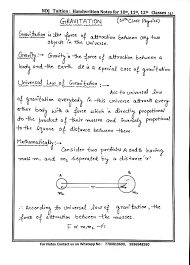 NDJ Tuition : Handwritten Notes for 10th, 11th, 12th Classes (1)
GRAVITATION (10th Class Physics)
Gravitation is the force of attraction between any two
object in the Universe.
Gravity :- Gravity is the force of attraction between a
body and the earth. It is a special case of gravitation
Universal Law of Gravitation :- Acc. to Universal law
of gravitation everybody in this universe attracts every
other body with a force which is directly proportional
to the product of their masses and inversely proportional
to the square of distance between them.
Mathematically :-
Consider two particles A and B having
mass m₁ and m₂ seperated by a distance 'r'
m₁ m₂
r
→ According to Universal law of gravitation, the
force of attraction between the masses.
F ∝ m₁m₂
For Notes Contact us on Whatsapp No :